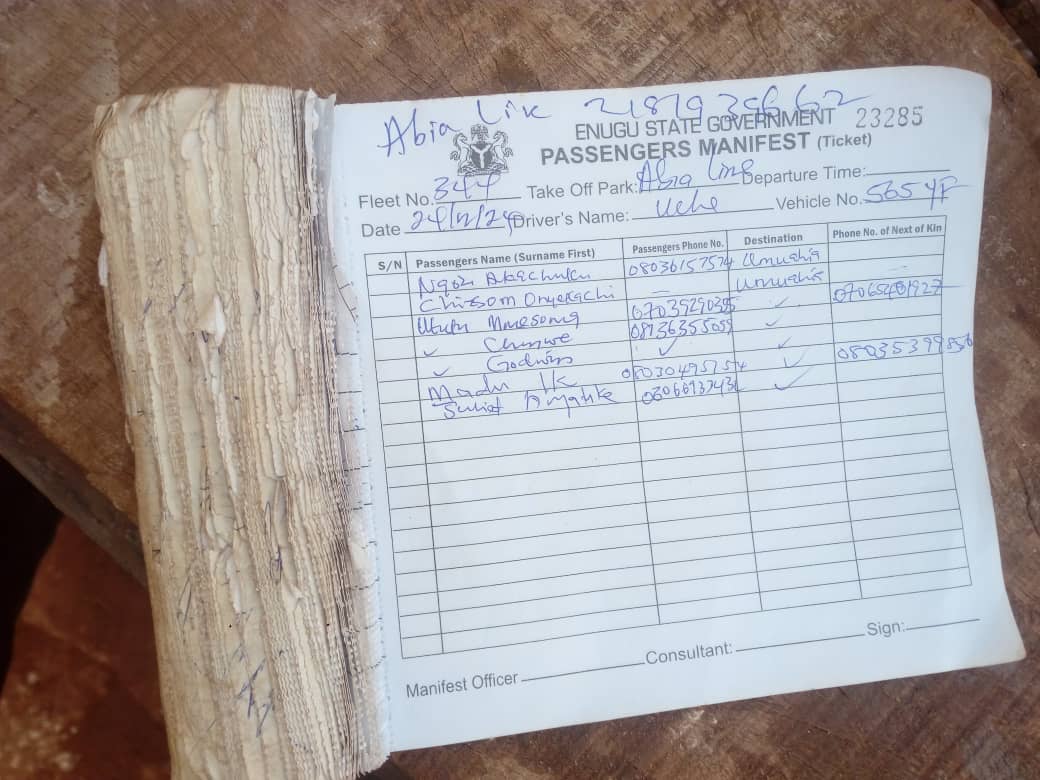 Abia Lik 2187939662
ENUGU STATE GOVERNMENT 23285
PASSENGERS MANIFEST (Ticket)
Fleet No. 344 Take Off Park: Abia Line Departure Time:
Date 24/12/24 Driver's Name: Uche Vehicle No. 565 YF
S/N Passengers Name (Surname First) Passengers Phone No. Destination Phone No. of Next of Kin
Ngozi 08036157574 Umuahia
Chisom Onyekachi — Umuahia —
Mmesoma 07039290385 ✓
✓ Chinwe 08136355059 ✓
✓ Godwin ✓ ✓
Madu Uk 08030495754 ✓
✓
Manifest Officer Consultant: Sign: